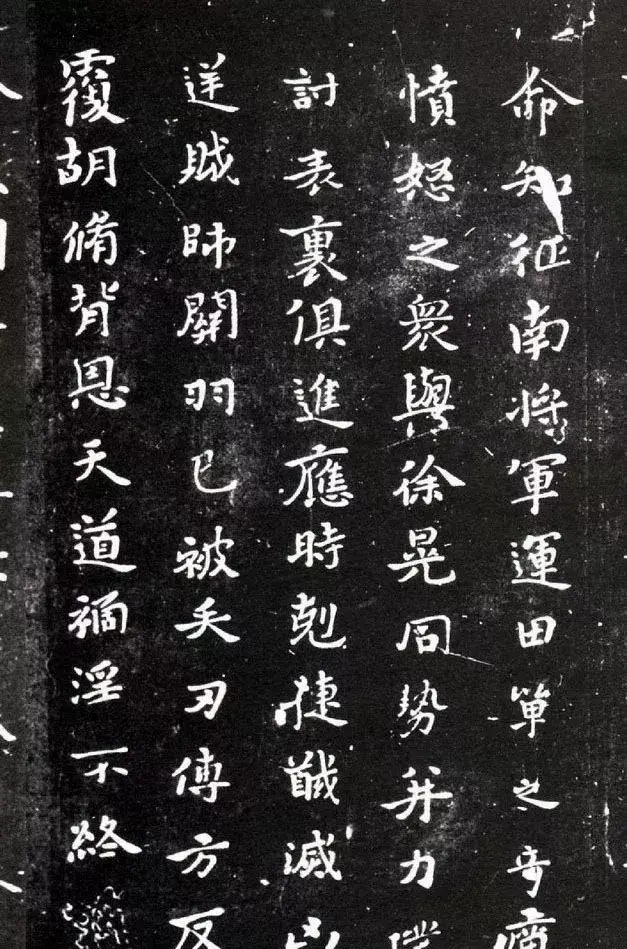 命知征南將軍運田單之奇厲
憤怒之衆與徐晃同勢并力
討表裏俱進應時剋捷馘滅凶
逆賊帥關羽已被矢刃傅方反
覆胡脩背恩天道禍淫不終